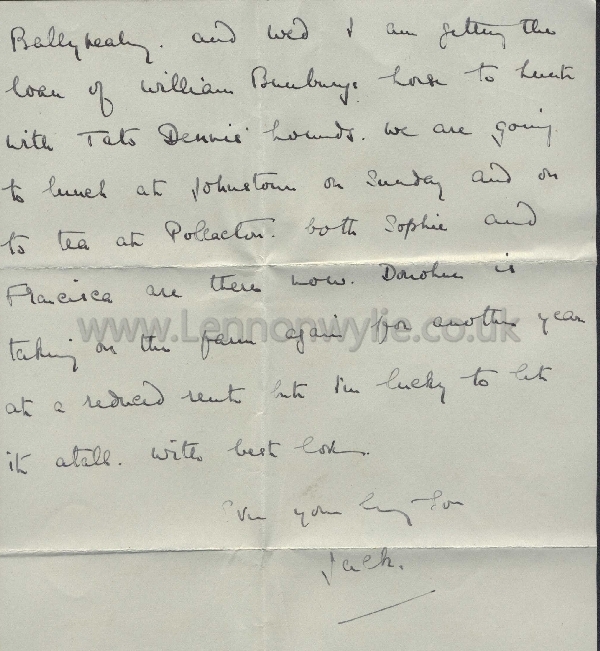 Ballykealey. and wed I am getting the
loan of William Bunburys horse to hunt
with Tato Dennis' hounds. we are going
to lunch at Johnstown on Sunday and on
to tea at Pollacton. both Sophie and
Francisca are there now. Donohue is
www.Lennonwylie.co.uk
taking on the farm again for another year
at a reduced rent but I'm lucky to let
it atall. With best love.
Ever your loving Son
Jack.